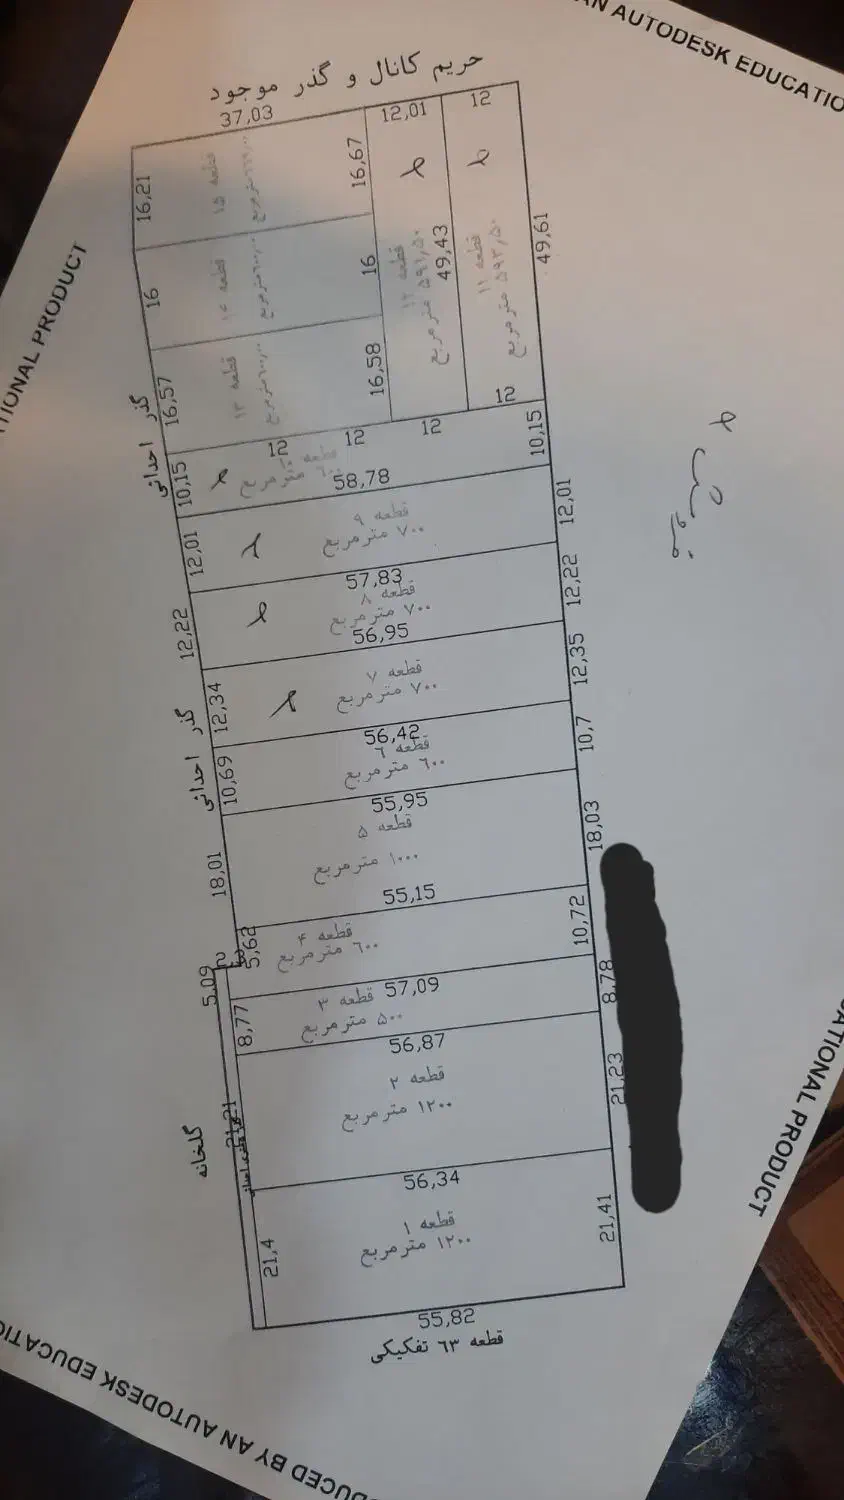 AN AUTODESK EDUCATIO
حریم کانال و گذر موجود
37,03
12,01
12
16,21
قطعه ۱۵
16,67
49,61
16
قطعه ۱۴
16
49,43
قطعه ۱۲
۵۹۱,۵۰ مترمربع
قطعه ۱۱
۵۹۳,۵۰ مترمربع
16,57
قطعه ۱۳
16,58
12
12
12
12
گذر احداثی
10,15
قطعه ۱۰
۶۰۰ مترمربع
58,78
10,15
12,01
قطعه ۹
۷۰۰ مترمربع
12,01
57,83
12,22
قطعه ۸
۷۰۰ مترمربع
12,22
56,95
12,34
قطعه ۷
۷۰۰ مترمربع
12,35
گذر احداثی
56,42
10,69
قطعه ۶
۶۰۰ مترمربع
10,7
55,95
18,01
قطعه ۵
۱۰۰۰ مترمربع
18,03
55,15
5,62
قطعه ۴
۶۰۰ مترمربع
10,72
5,09
57,09
8,77
قطعه ۳
۵۰۰ مترمربع
8,78
56,87
گلخانه
21,21
قطعه ۲
۱۲۰۰ مترمربع
21,23
56,34
21,4
قطعه ۱
۱۲۰۰ مترمربع
21,41
55,82
قطعه ۶۳ تفکیکی
فروش
TIONAL PRODUCT
CATIONAL PRODUCT
ODUCED BY AN AUTODESK EDUCATIO